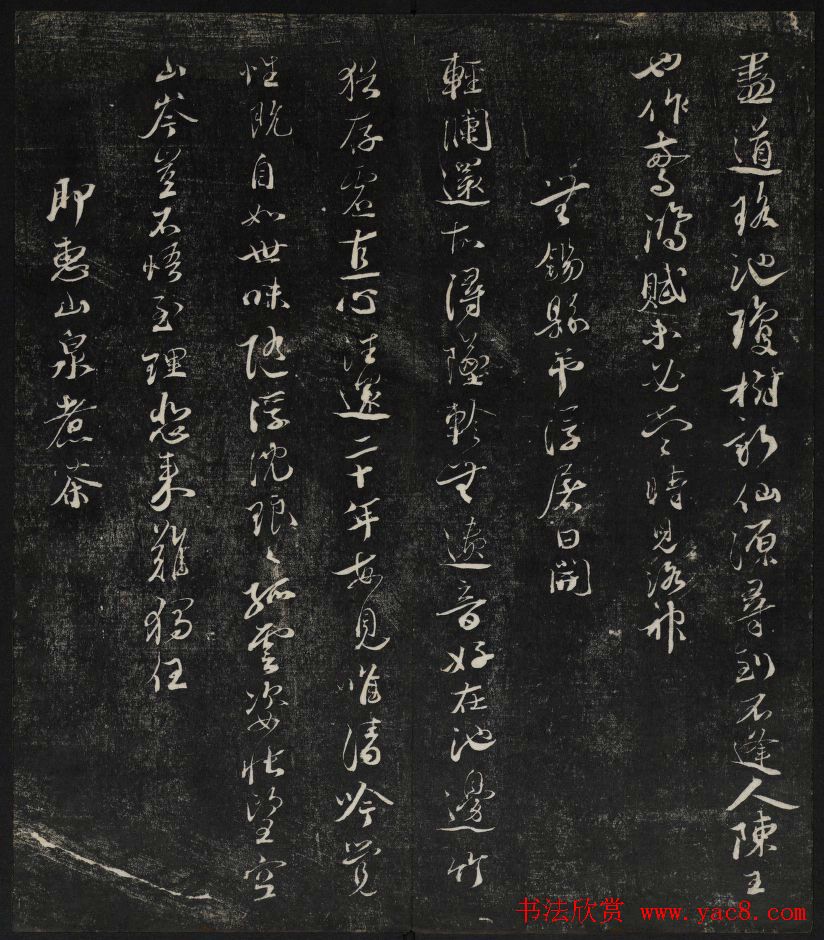 盡道瑤池瓊樹新仙源尋到不逢人陳王
也作驚鴻賦未必當時見洛神
無錫縣弔浮屠日開
輕瀾還故潯墜軫無遺音好在池邊竹
猶存虛直心往還二十年每見唯清吟覺
性既自如世味隨浮沈琅〻孤雲姿悵望空
山岑豈不悟至理悲來難獨任
即惠山泉煮茶
书法欣赏 www.yac8.com